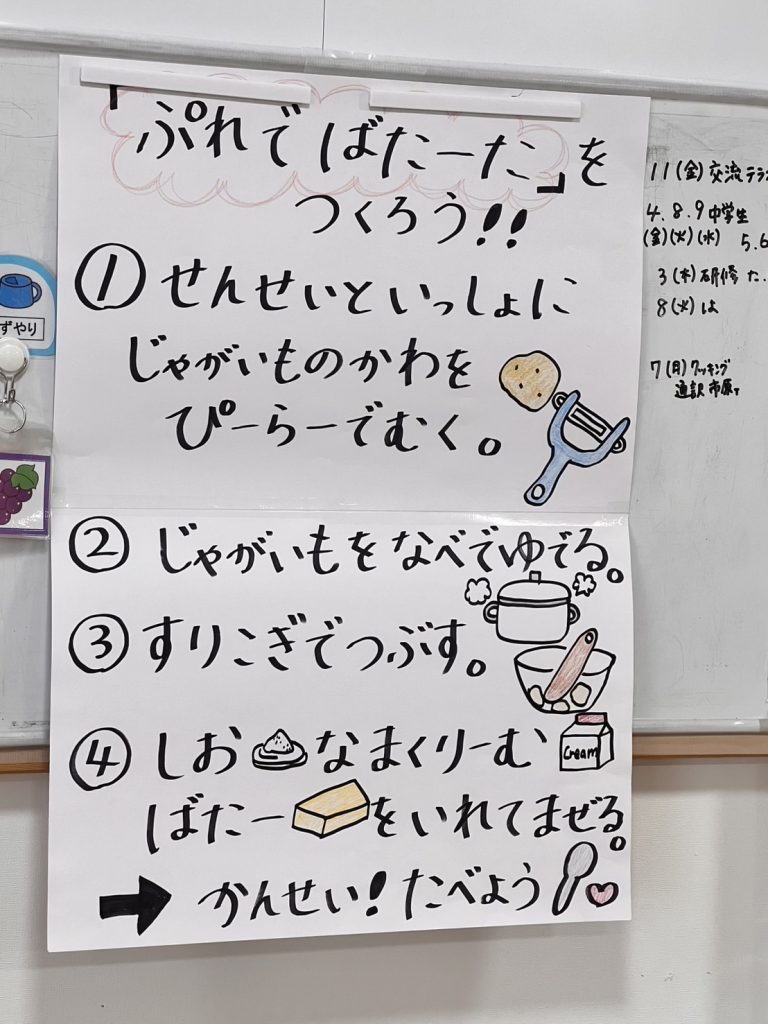 「ぷれで ばたーた」を
つくろう!!
① せんせいといっしょに
じゃがいものかわを
ぴーらーでむく。
② じゃがいもをなべでゆでる。
③ すりこぎでつぶす。
④ しお なまくりーむ
Cream
ばたー をいれてまぜる。
→ かんせい! たべよう
ずやり
11(金)交流テラ
4.8.9中学生
(金)(火)(水) 5.6
3(木)研修 た.
8(火)は
7(月)クッキング
通訳 市原